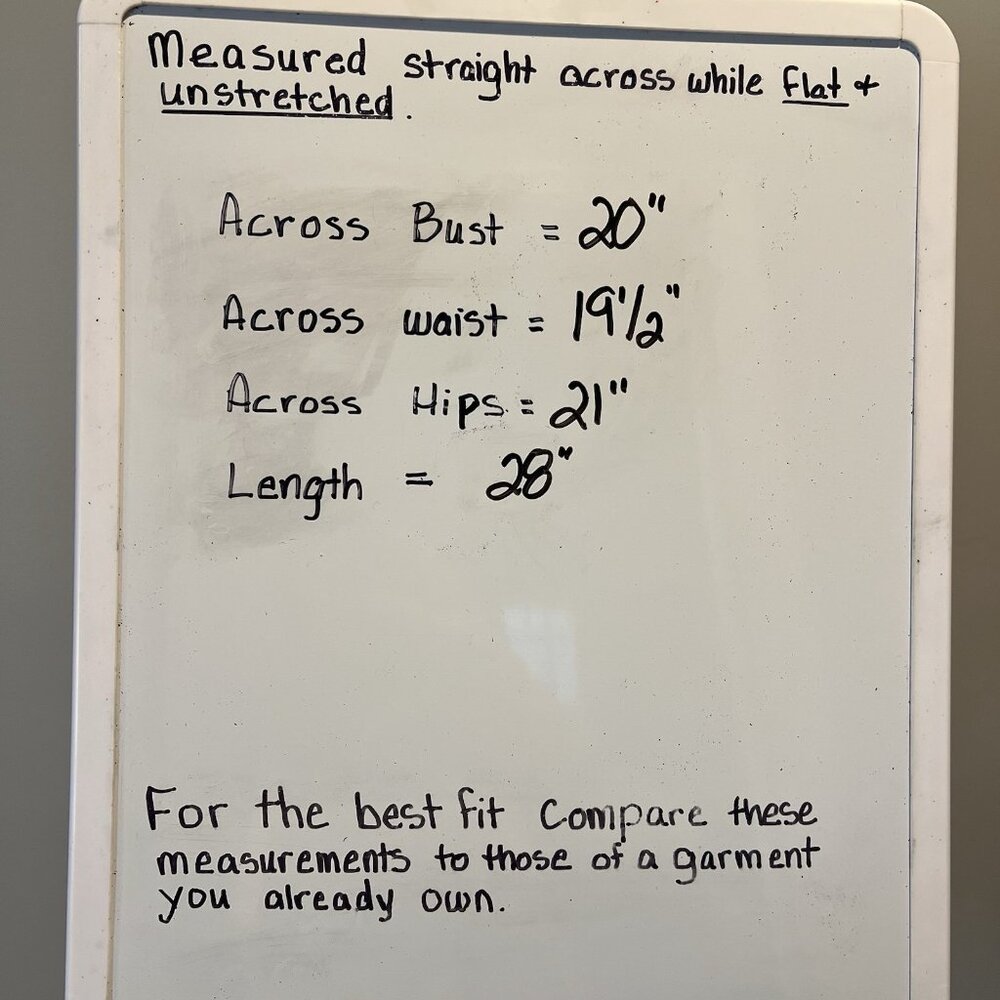 Measured straight across while flat &
unstretched.
Across Bust = 20"
Across waist = 19 1/2"
Across Hips = 21"
Length = 28"
For the best fit Compare these
measurements to those of a garment
you already own.